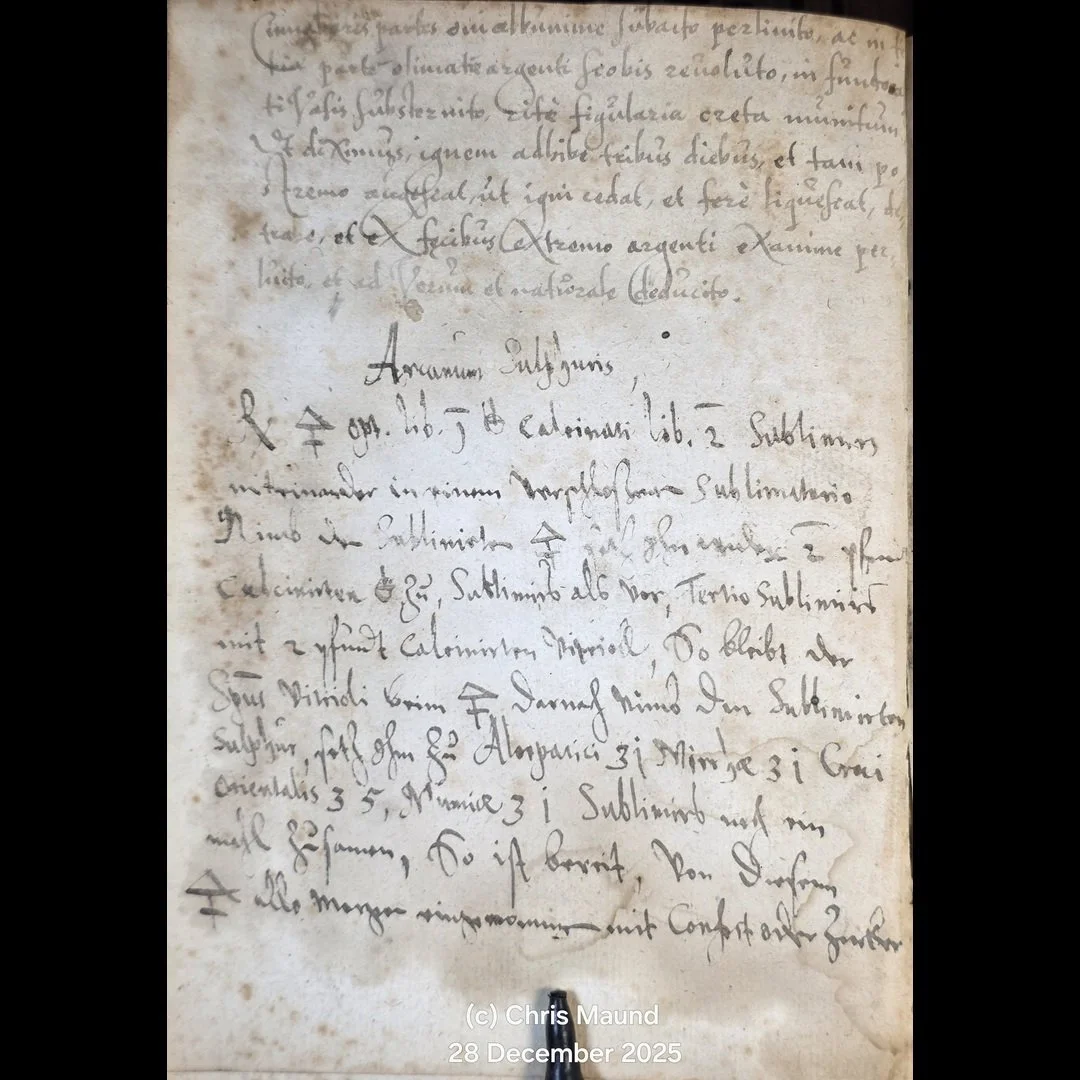 partes ovi albumine subacto perlinito, ac in
parte olimate argenti scobis revoluto, in fundo
ti Vasis substernito, ritè figularia creta munitum
Ut diximus, ignem adhibe tribus diebus, et tam po
stremo augescat, ut igni cedat, et ferè liquescat,
et ex fecibus extremo argenti examine per
luito, et ad Verum et naturale deducito.
Arcanum Sulphuris,
℞ 🜍 opt. lib. j Calcinati lib. 2 Sublimirs
miteinander in einem verschlossnen Sublimatorio
Nimb den Sublimirten 🜍 setz ihm wieder 2 pfundt
Calcinirten zu, Sublimirs als vor, Tertio Sublimirs
mit 2 pfundt Calcinirten Vitrioll, So bleibt der
Spūs Vitrioli beim 🜍 Darnach Nimb den Sublimirten
Sulphur, setz ihm zu Aloepatici ʒ j Mirrhæ ʒ j Croci
Orientalis ʒ 5, Mumiæ ʒ j Sublimirs noch ein
mahl Zusamen, So ist bereit, Von diesem
🜍 alle Morgen eingenommen mit Confect oder Zucker
(c) Chris Maund
28 December 2025